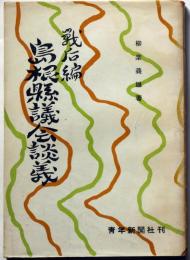 戰后編
島根縣議会談義
柳津義雄著
青年新聞社刊